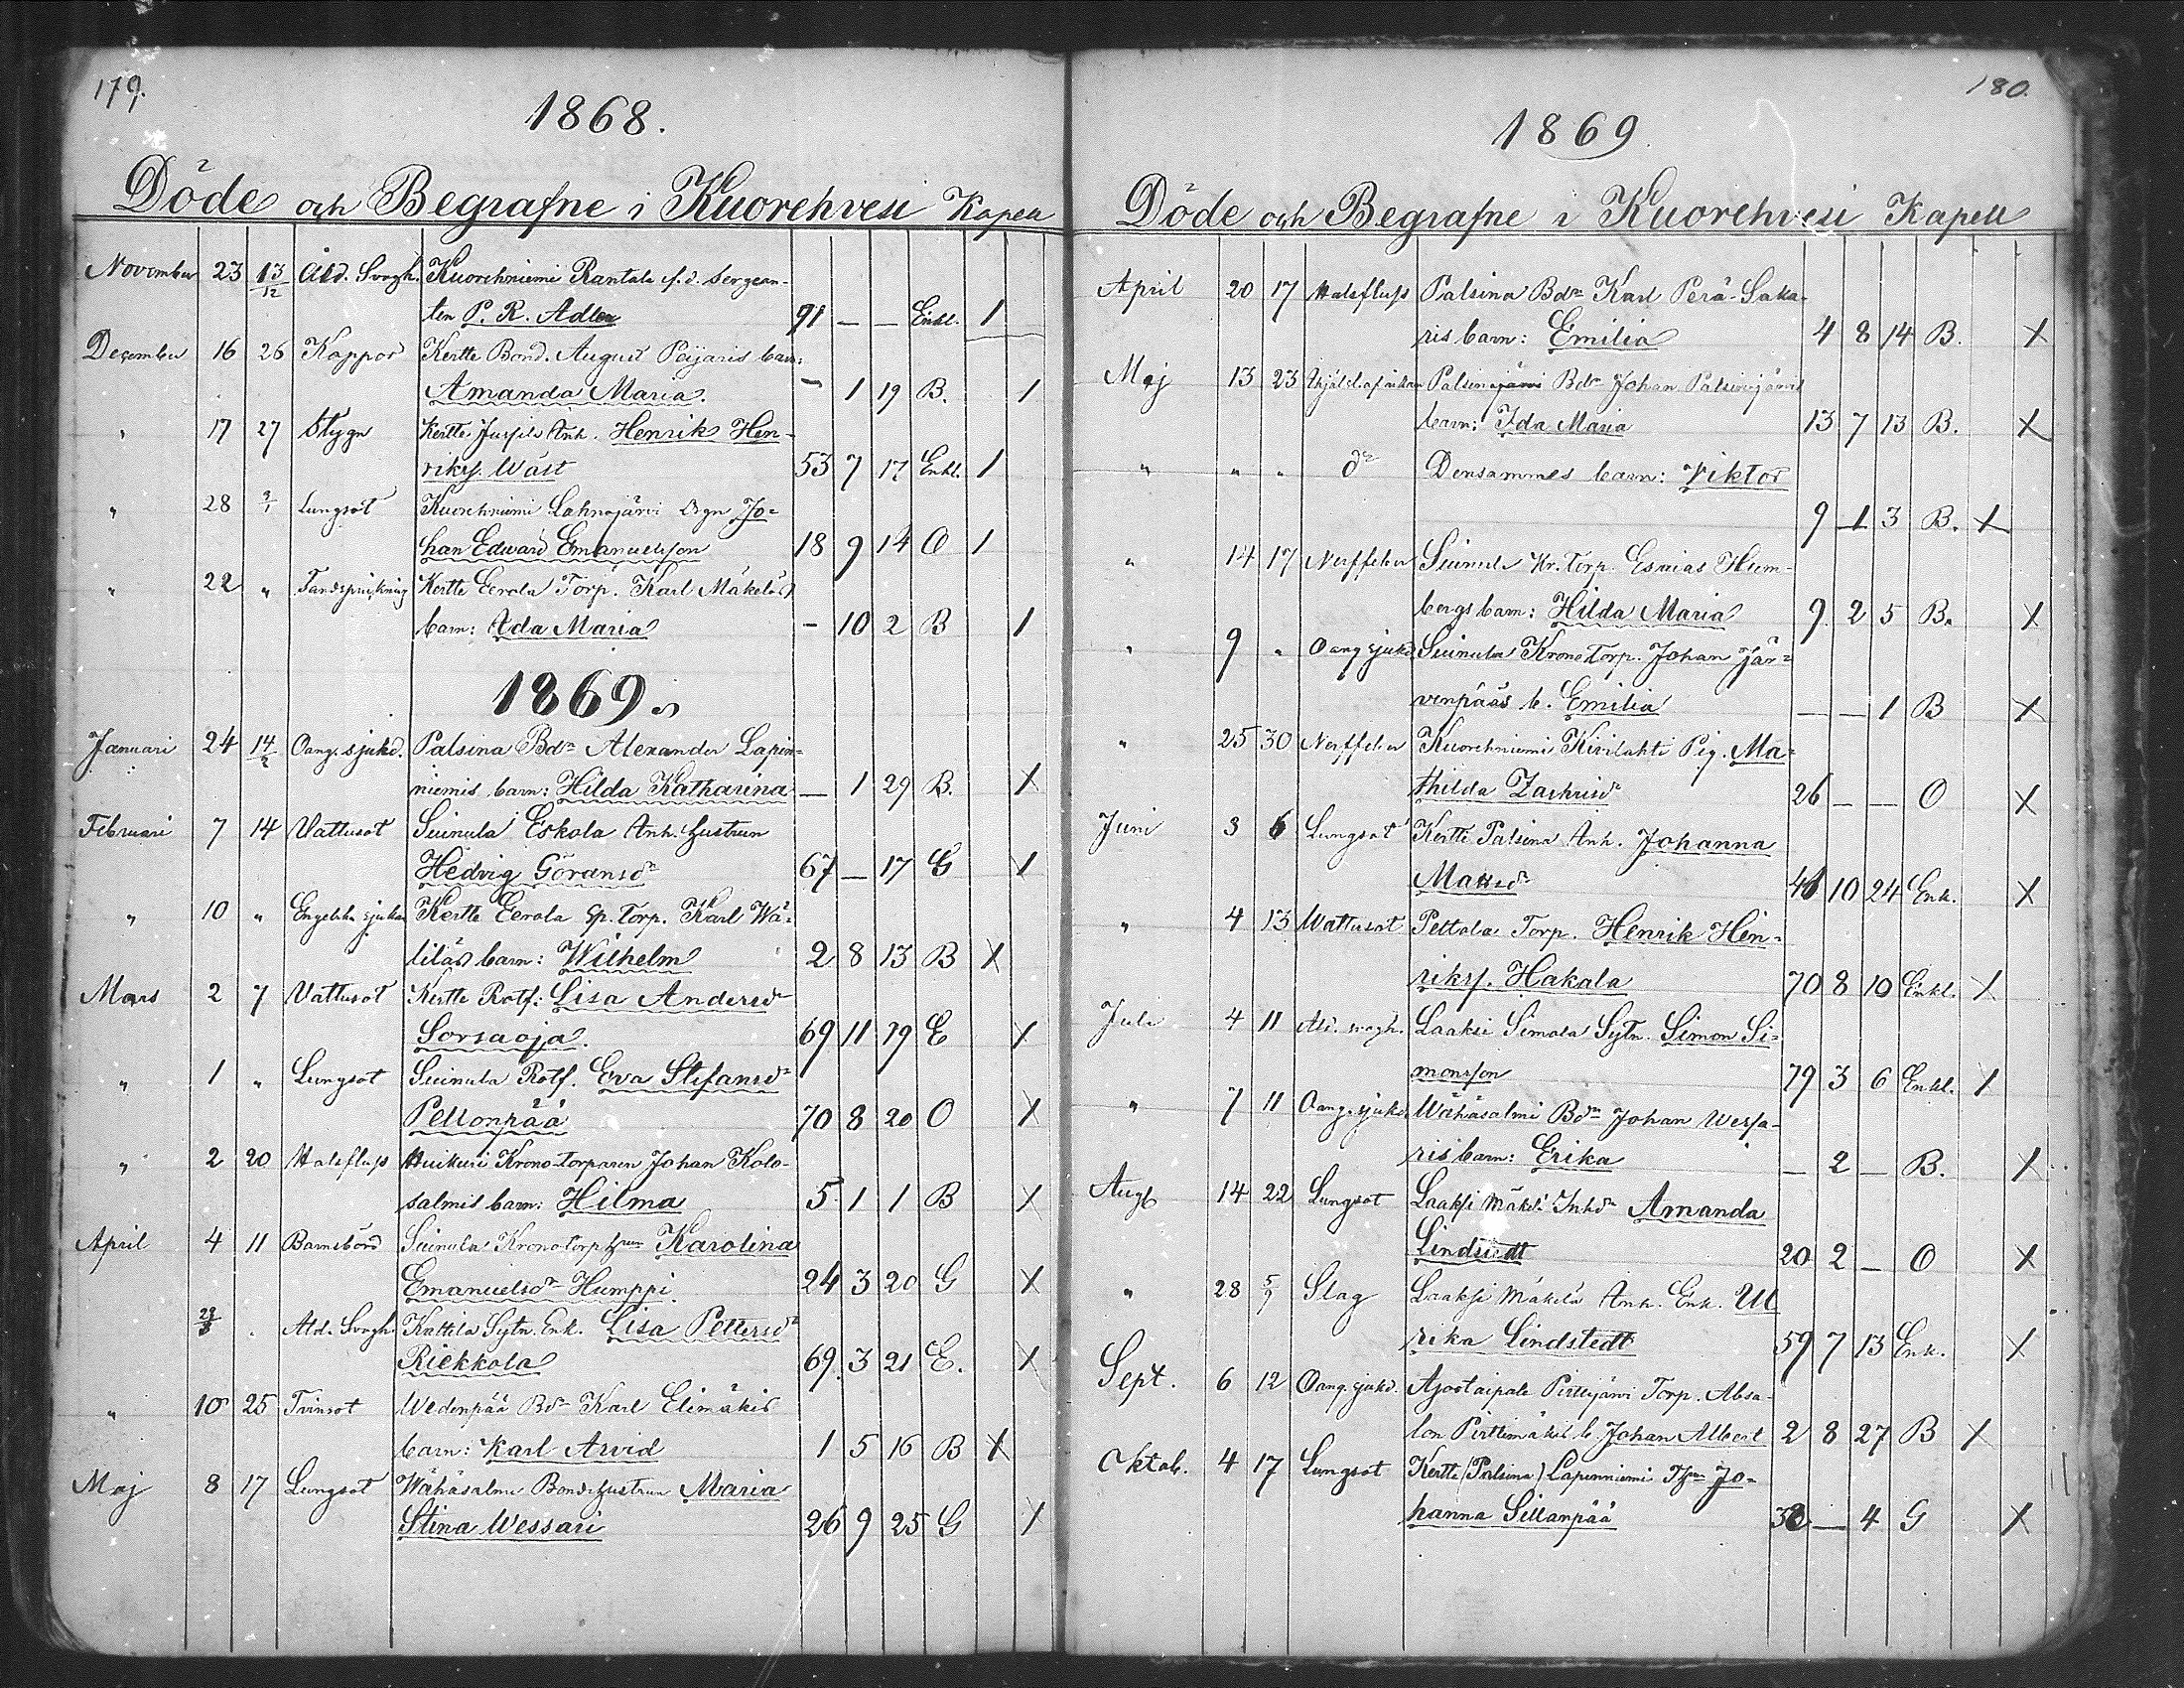 179.
1868.
Döde och Begrafne i Kuorehvesi Kapell
November 23 13/12 Ald. Svagh. Kuorehniemi Rantala f.d. Sergean-
ten P. R. Adler 91 — — Enkl. 1
December 16 26 Koppor Kertte Bond. August Peijaris barn:
Amanda Maria. — 1 19 B. 1
" 17 27 Stygn Kertte Jussila Inh. Henrik Hen-
rikss. Wäst 53 7 17 Enkl. 1
" 28 3/1 Lungsot Kuorehniemi Lahnajärvi Drgn Jo-
han Edward Emanuelsson 18 9 14 O 1
" 22 " Tandsprickning Kertte Eerola Torp. Karl Mäkeläs
barn: Ida Maria — 10 2 B 1
1869.
Januari 24 14/2 Oang. sjukd. Palsina Bdn Alexander Lapin-
niemis barn: Hilda Katharina — 1 29 B. X
Februari 7 14 Vattusot Suinula Eskola Inh. hustrun
Hedvig Göransdr 67 — 17 G X
" 10 " Engelska sjukan Kertte Eerola Sp. Torp. Karl Wä-
liläs barn: Wilhelm 2 8 13 B X
Mars 2 7 Vattusot Kertte Rotf: Lisa Andersdr
Sorsaoja. 69 11 19 E X
" 1 " Lungsot Suinula Rotf. Eva Stefansdr
Pellonpää 70 8 20 O X
" 2 20 Halsfluss Huikuri Krono-torparen Johan Kolo-
salmis barn: Hilma 5 1 1 B X
April 4 11 Barnsbörd Suinula Kronotorp.hun Karolina
Emanuelsdr Humppi. 24 3 20 G X
28/3 . Ald. Svagh. Kattila Sytn. Enk. Lisa Pettersdr
Riekkola 69. 3 21 E. X
" 10 25 Tvinsot Wedenpää Bdn Karl Elimäkis
barn: Karl Arvid 1 5 16 B X
Maj 8 17 Lungsot Wähäsalmi Bondehustrun Maria
Stina Wessari 26 9 25 G X
180.
1869
Döde och Begrafne i Kuorehvesi Kapell
April 20 17 Halsfluss Palsina Bdn Karl Perä-Saka-
ris barn: Emilia 4 8 14 B. X
Maj 13 23 Palsinajärvi Bdn Johan Palsinajärvis
barn: Ida Maria 13 7 13 B. X
" " " do Densammes barn: Viktor
9 1 3 B. X
" 14 17 Nerffeber Suinula Kr. Torp. Esaias Hum-
bergs barn: Hilda Maria 9 2 5 B. X
" 9 " Oang sjukd. Suinula Krono Torp. Johan Jär-
venpääs b. Emilia — — 1 B X
" 25 30 Nerffeber Kuorehniemi Kivilahti Pig. Ma-
thilda Zachrisdr 26 — — O X
Juni 3 6 Lungsot Kertte Palsina Inh. Johanna
Mattsdr 10 24 Enk. X
" 4 13 Wattusot Pettola Torp. Henrik Hen-
rikss. Hakala 70 8 10 Enkl. X
Juli 4 11 Ald. svagh. Laaksi Simola Sytn. Simon Si-
monsson 79 3 6 Enkl. X
" 7 11 Oang. sjukd. Wähäsalmi Bdn Johan Wessa-
ris barn: Erika — 2 — B. X
Aug. 14 22 Lungsot Laaksi Mäkelä Inhdr Amanda
Lindstedt 20 2 — O X
" 28 5/9 Slag Laaksi Mäkelä Inh. Enk. Ul
rika Lindstedt 59 7 13 Enk. X
Sept. 6 12 Oang. sjukd. Ajostaipale Pirttijärvi Torp. Absa-
lon Pirttimäkis b. Johan Albert 2 8 27 B X
Oktob. 4 17 Lungsot Kertte (Palsina) Lapinniemi Thun Jo-
hanna Sillanpää — 4 G X